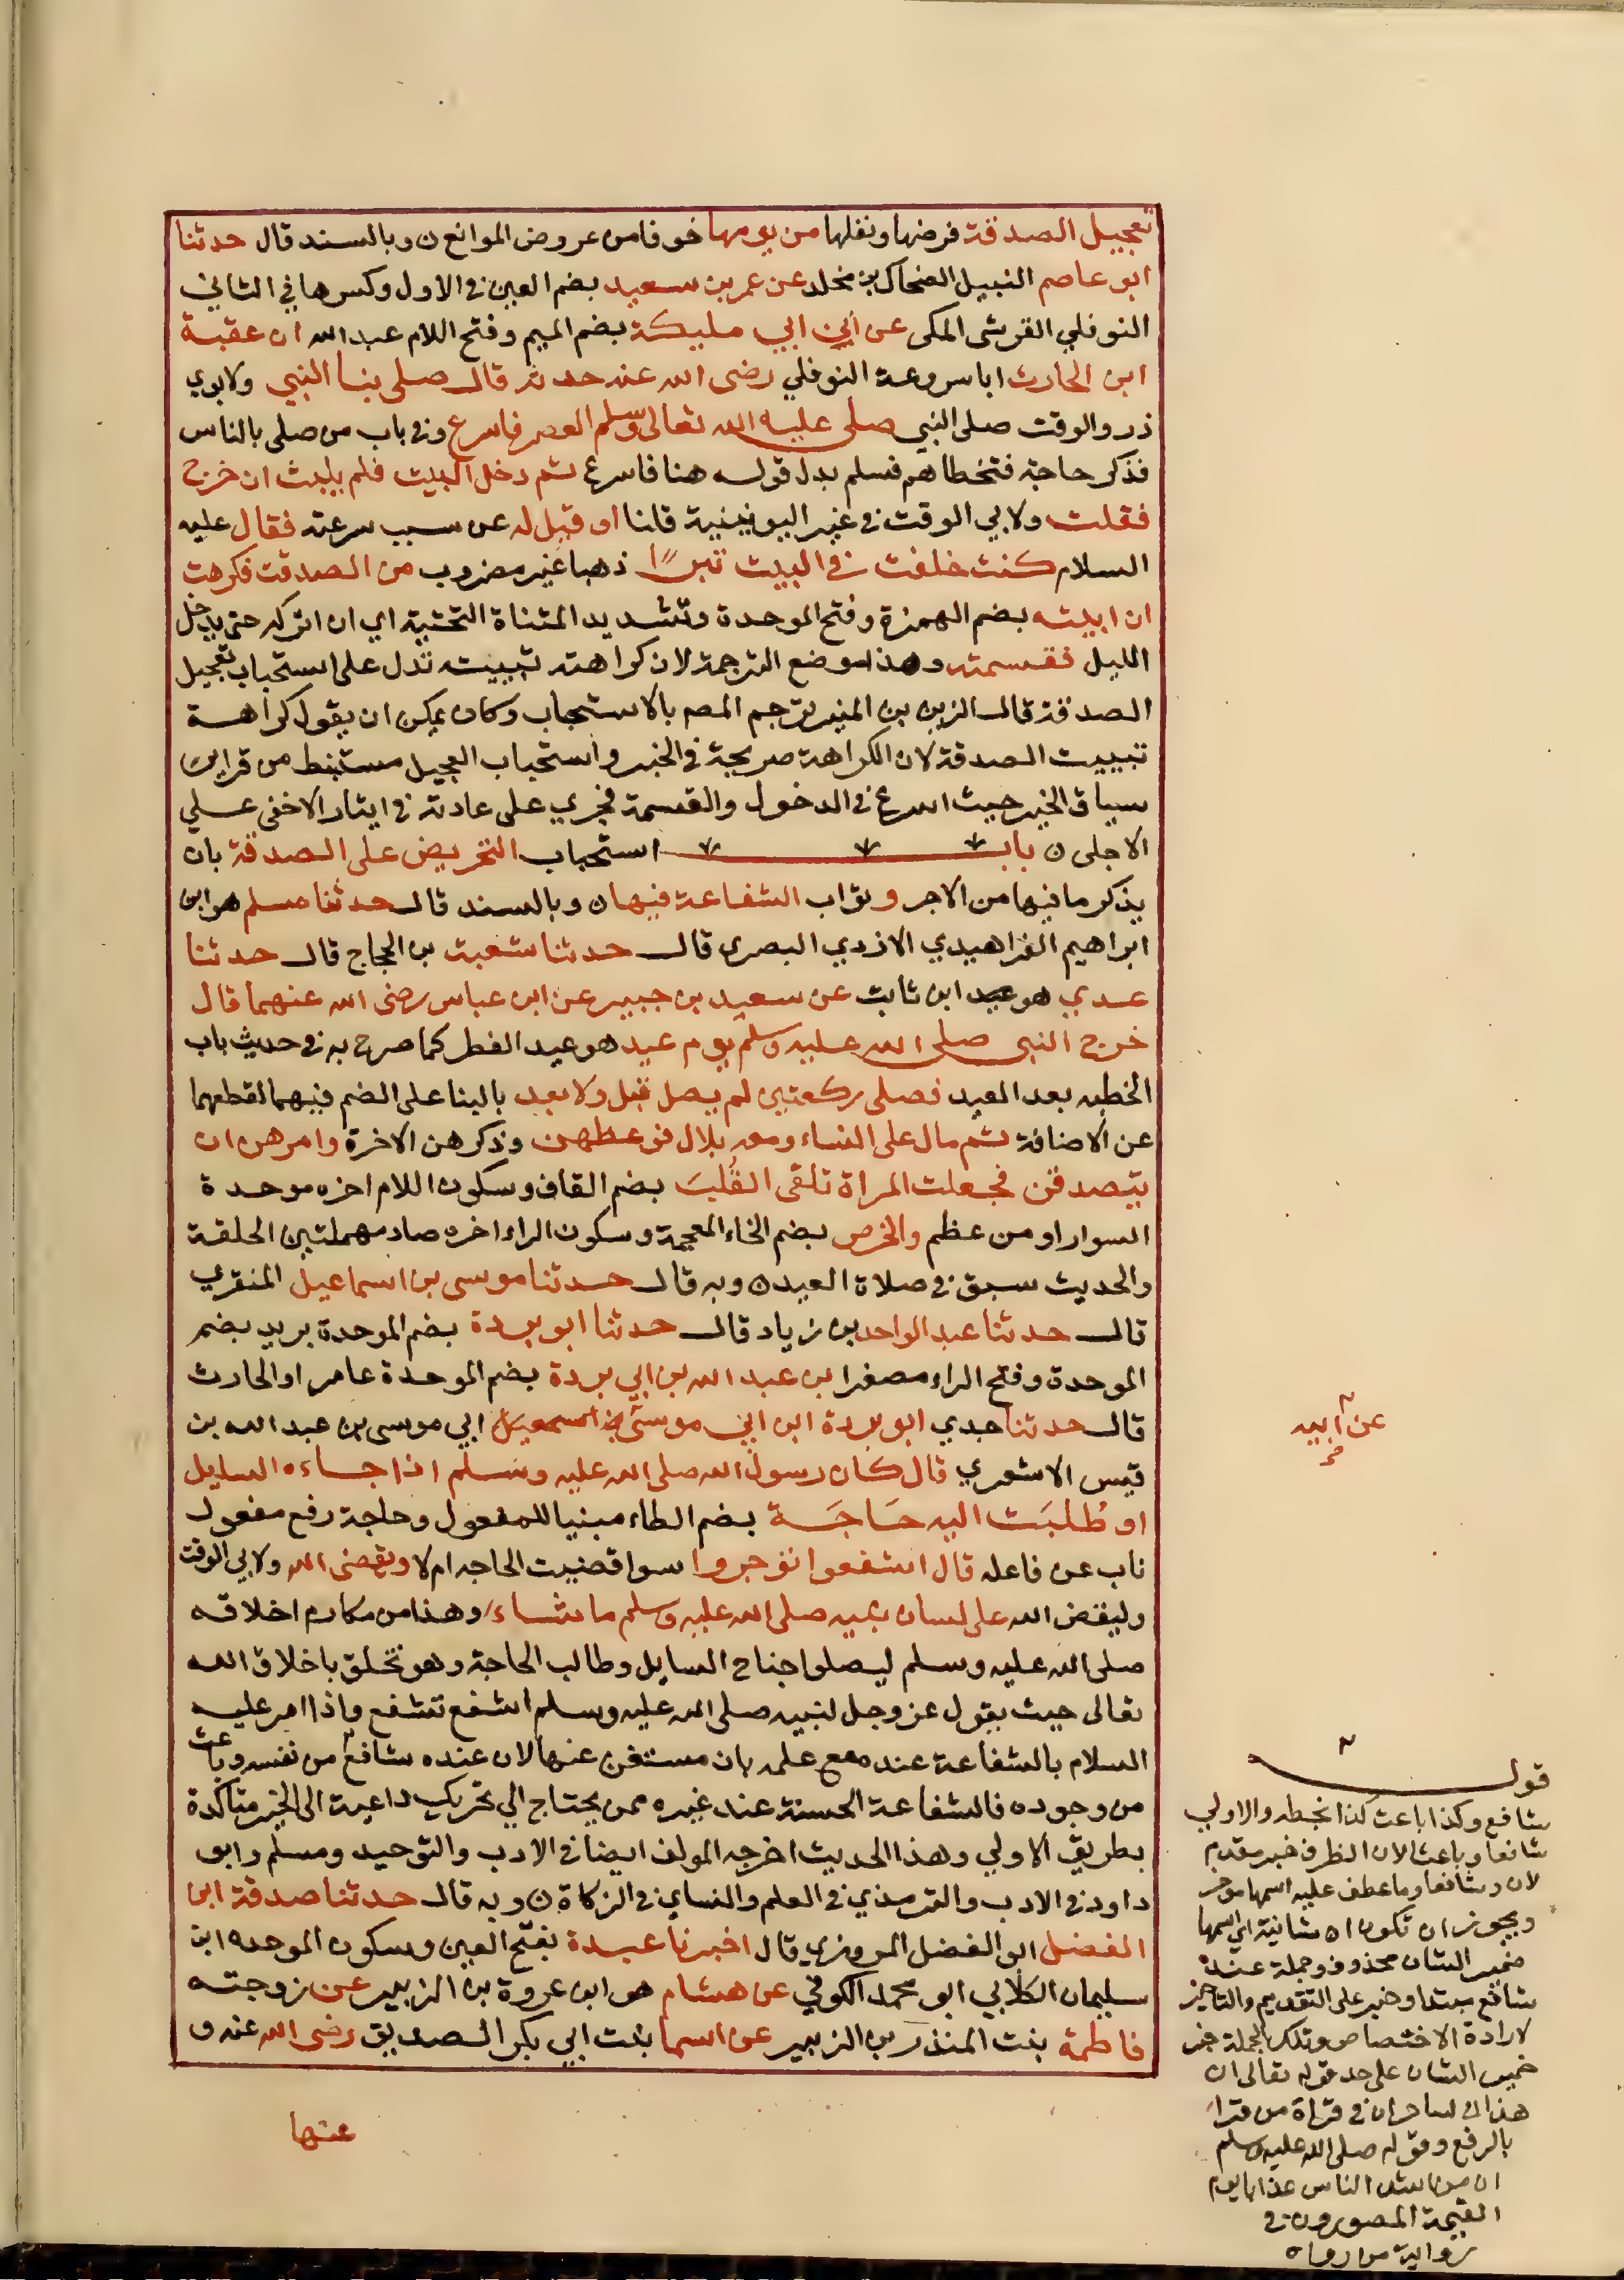 تعجيل الصدقة فرضها ونفلها من يومها خوفا من عروض الموانع ن وبالسند قال حدثنا
ابو عاصم النبيل الضحاك بن مخلد عن عمر بن سعيد بضم العين في الاول وكسرها في الثاني
النوفلي القرشي المكي عن ابن ابي مليكة بضم الميم وفتح اللام عبد الله ان عقبة
ابن الحارث ابا سروعة النوفلي رضى الله عنه حدثه قال صلى بنا النبي ولابوي
ذر والوقت صلى النبي صلى عليه الله تعالى وسلم العصر فاسرع وفي باب من صلى بالناس
فذكر حاجة فتخطاهم فسلم بدل قوله هنا فاسرع ثم دخل البيت فلم يلبث ان خرج
فقلت ولابي الوقت في غير اليونينية قلنا او قيل له عن سبب سرعته فقال عليه
السلام كنت خلفت في البيت تبرًا ذهبا غير مضروب من الصدقة فكرهت
ان ابيته بضم الهمزة وفتح الموحدة وتشديد المثناة التحتية اي ان اتركه حتى يدخل
الليل فقسمته وهذا موضع الترجمة لان كراهته تبييته تدل على استحباب تعجيل
الصدقة قال الزين بن المنير ترجم المص بالاستحباب وكان يمكن ان يقول كراهة
تبييت الصدقة لان الكراهة صريحة في الخبر واستحباب التعجيل مستنبط من قراين
سياق الخبر حيث اسرع في الدخول والقسمة فجري على عادته في ايثار الاخفى علي
الاجلى ن باب استحباب التحريض على الصدقة بان
يذكر ما فيها من الاجر وثواب الشفاعة فيها ن وبالسند قال حدثنا مسلم هو ابن
ابراهيم الفراهيدي الازدي البصري قال حدثنا شعبة بن الحجاج قال حدثنا
عدي هو ابن ثابت عن سعيد بن جبير عن ابن عباس رضى الله عنهما قال
خرج النبي صلى الله عليه وسلم يوم عيد هو عيد الفطر كما صرح به في حديث باب
الخطبه بعد العيد فصلى ركعتين لم يصل قبل ولا بعد بالبنا على الضم فيهما لقطعهما
عن الاضافة ثم مال على النساء ومعه بلال فوعظهن وذكرهن الاخرة وامرهن ان
يتصدقن فجعلت المراة تلقى القُلبَ بضم القاف وسكون اللام اخره موحدة
السوار او من عظم والخرص بضم الخاء المعجمة وسكون الراء اخره صاد مهملتين الحلقة
والحديث سبق في صلاة العيد ن وبه قال حدثنا موسى بن اسماعيل المنقري
قال حدثنا عبد الواحد بن زياد قال حدثنا ابو بردة بضم الموحدة بريد بضم
الموحدة وفتح الراء مصغرا بن عبد الله بن ابي بردة بضم الموحدة عامر او الحارث
قال حدثنا جدي ابو بردة ابن ابي موسى ابي موسى بن عبد الله بن
قيس الاشعري قال كان رسول الله صلى الله عليه وسلم اذا جاءه السايل
او طُلبَت اليه حَاجَة بضم الطاء مبنيا للمفعول وحاجة رفع مفعول
ناب عن فاعله قال اشفعوا توجروا سوا قضيت الحاجه ام لا ويقضى الله ولابي الوقت
وليقض الله على لسان نبيه صلى الله عليه وسلم ما شاء وهذا من مكارم اخلاقه
صلى الله عليه وسلم ليصلوا جناح السايل وطالب الحاجة وهو تخلق باخلاق الله
تعالى حيث يقول عز وجل لنبيه صلى الله عليه وسلم اشفع تشفع واذا امر عليه
السلام بالشفاعة عنده مع علمه بان مستغن عنها لان عنده شافع من نفسه وباعث
من وجوده فالشفاعة الحسنة عند غيره ممن يحتاج الي تحريك داعية الى الخير متاكدة
بطريق الاولي وهذا الحديث اخرجه المولف ايضا في الادب والتوحيد ومسلم وابو
داود في الادب والترمذي في العلم والنساي في الزكاة ن وبه قال حدثنا صدقة ابن
الفضل ابو الفضل المروزي قال اخبرنا عبدة بفتح العين وسكون الموحده ابن
سليمان الكلابي ابو محمد الكوفي عن هشام هو ابن عروة بن الزبير عن زوجته
فاطمة بنت المنذر بن الزبير عن اسما بنت ابي بكر الصديق رضى الله عنه و
عنها
عن ابيه
قوله
شافع وكذا باعث كذا بخطه والاولي
شافعا وباعثا لان الظرف خبر مقدم
لان وشافعا وما عطف عليه اسمها موخر
ويجوز ان تكون ان شانية اي اسمها
ضمير الشان محذوف وجملة عنده
شافع مبتدا وخبر على التقديم والتاخير
لارادة الاختصاص وتلك الجملة خبر
ضمير الشان على حد قوله تعالى ان
هذان لساحران في قراة من قرا
بالرفع وقوله صلى الله عليه وسلم
ان من اشد الناس عذابا يوم
القيمة المصورون في
رواية من رواه